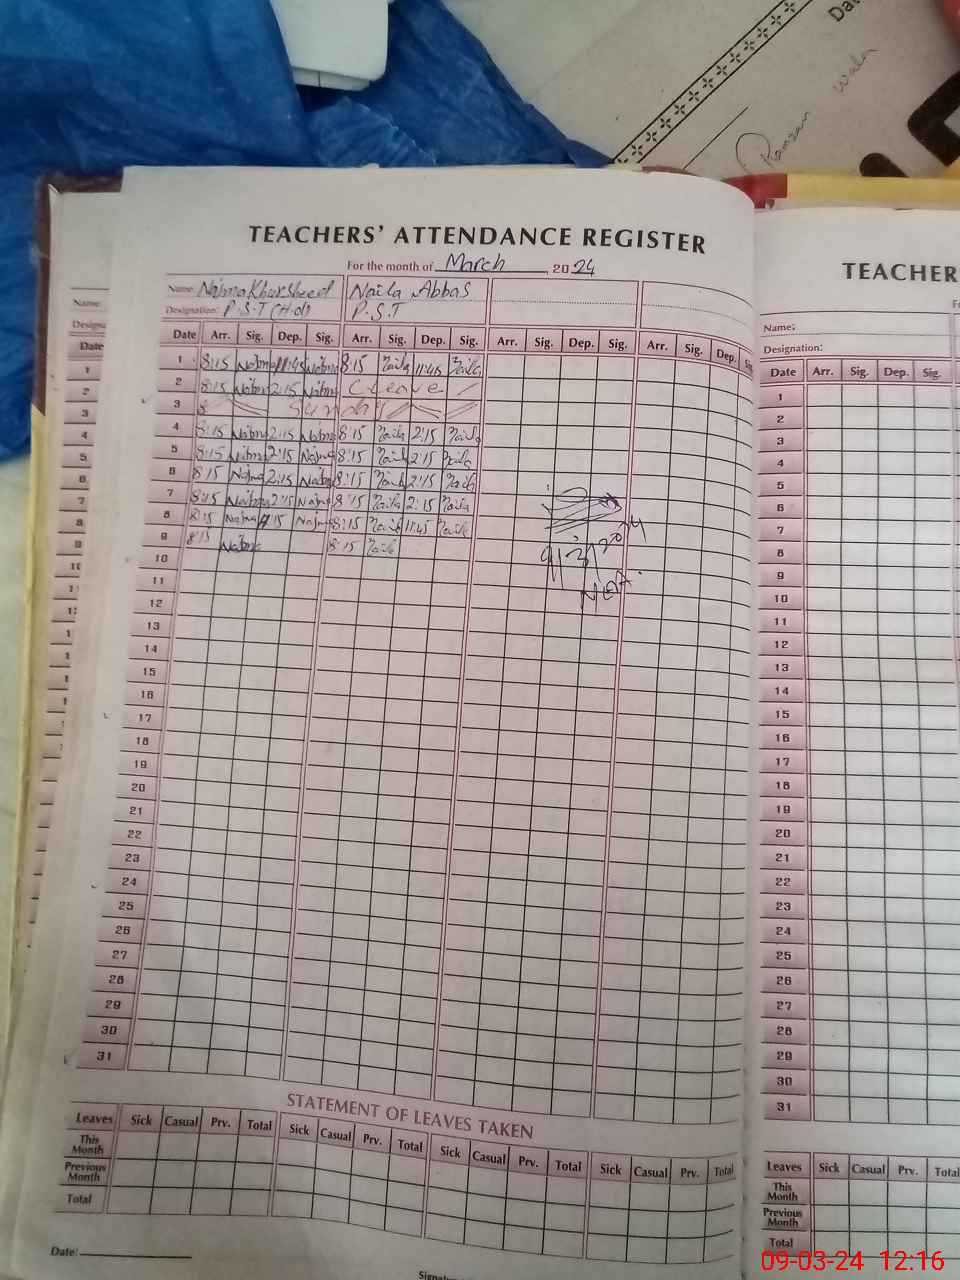 Da
Ramzan wala
TEACHERS' ATTENDANCE REGISTER
For the month of March, 2024
Name: Najma Khursheed Naila Abbas
Designation: P.S.T (H.d) P.S.T
Date Arr. Sig. Dep. Sig. Arr. Sig. Dep. Sig. Arr. Sig. Dep. Sig. Arr. Sig. Dep. Sig.
1 8:15 Najma 11:45 Najma 8:15 Naila 11:45 Naila
2 8:15 Najma 2:15 Najma C Leave
3 Sunday
4 8:15 Najma 2:15 Najma 8:15 Naila 2:15 Naila
5 8:15 Najma 2:15 Najma 8:15 Naila 2:15 Naila
6 8:15 Najma 2:15 Najma 8:15 Naila 2:15 Naila
7 8:15 Najma 2:15 Najma 8:15 Naila 2:15 Naila
8 8:15 Najma Najma 8:15 Naila 11:45 Naila
9 8:15 Najma 8:15 Naila
9/3/2024
MEA.
10
11
12
13
14
15
16
17
18
19
20
21
22
23
24
25
26
27
28
29
30
31
STATEMENT OF LEAVES TAKEN
Leaves Sick Casual Prv. Total Sick Casual Prv. Total Sick Casual Prv. Total Sick Casual Prv. Total
This Month
Previous Month
Total
Date:
Signatu
TEACHER
Name:
Designation:
Date Arr. Sig. Dep. Sig.
1
2
3
4
5
6
7
8
9
10
11
12
13
14
15
16
17
18
19
20
21
22
23
24
25
26
27
28
29
30
31
Leaves Sick Casual Prv. Total
This Month
Previous Month
Total
09-03-24 12:16